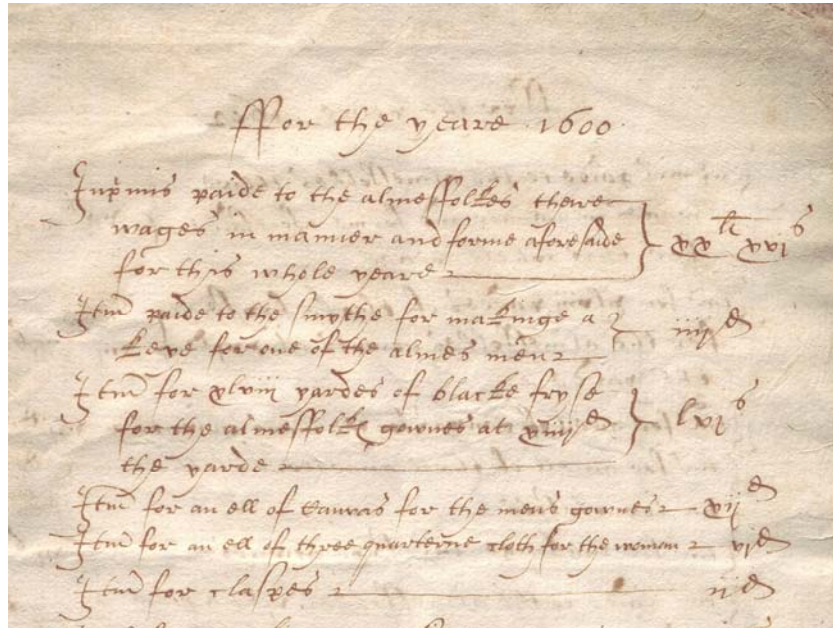 ffor the yeare 1600.
Inp̃mis paide to the almesffolkes theire
wages in manner and forme aforesaide
for this whole yeare } xx li xvi s
Itm̃ paide to the smythe for makinge a
keye for one of the almes men } iiij d
Itm̃ for xlviii yardes of blacke fryse
for the almesffolkes gownes at xiiij d } lvi s
the yarde
Itm̃ for an ell of Canvas for the mens gownes xij d
Itm̃ for an ell of three quarterne cloth for the woman vj d
Itm̃ for claspes ij d